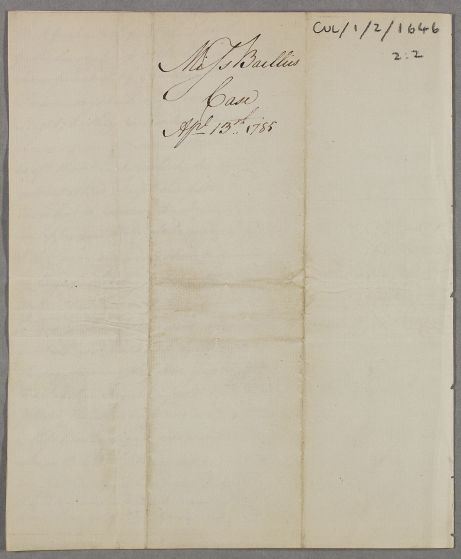 CUL/1/2/1646
2:2
Miss Baillies
Case
Apl 13th 1785